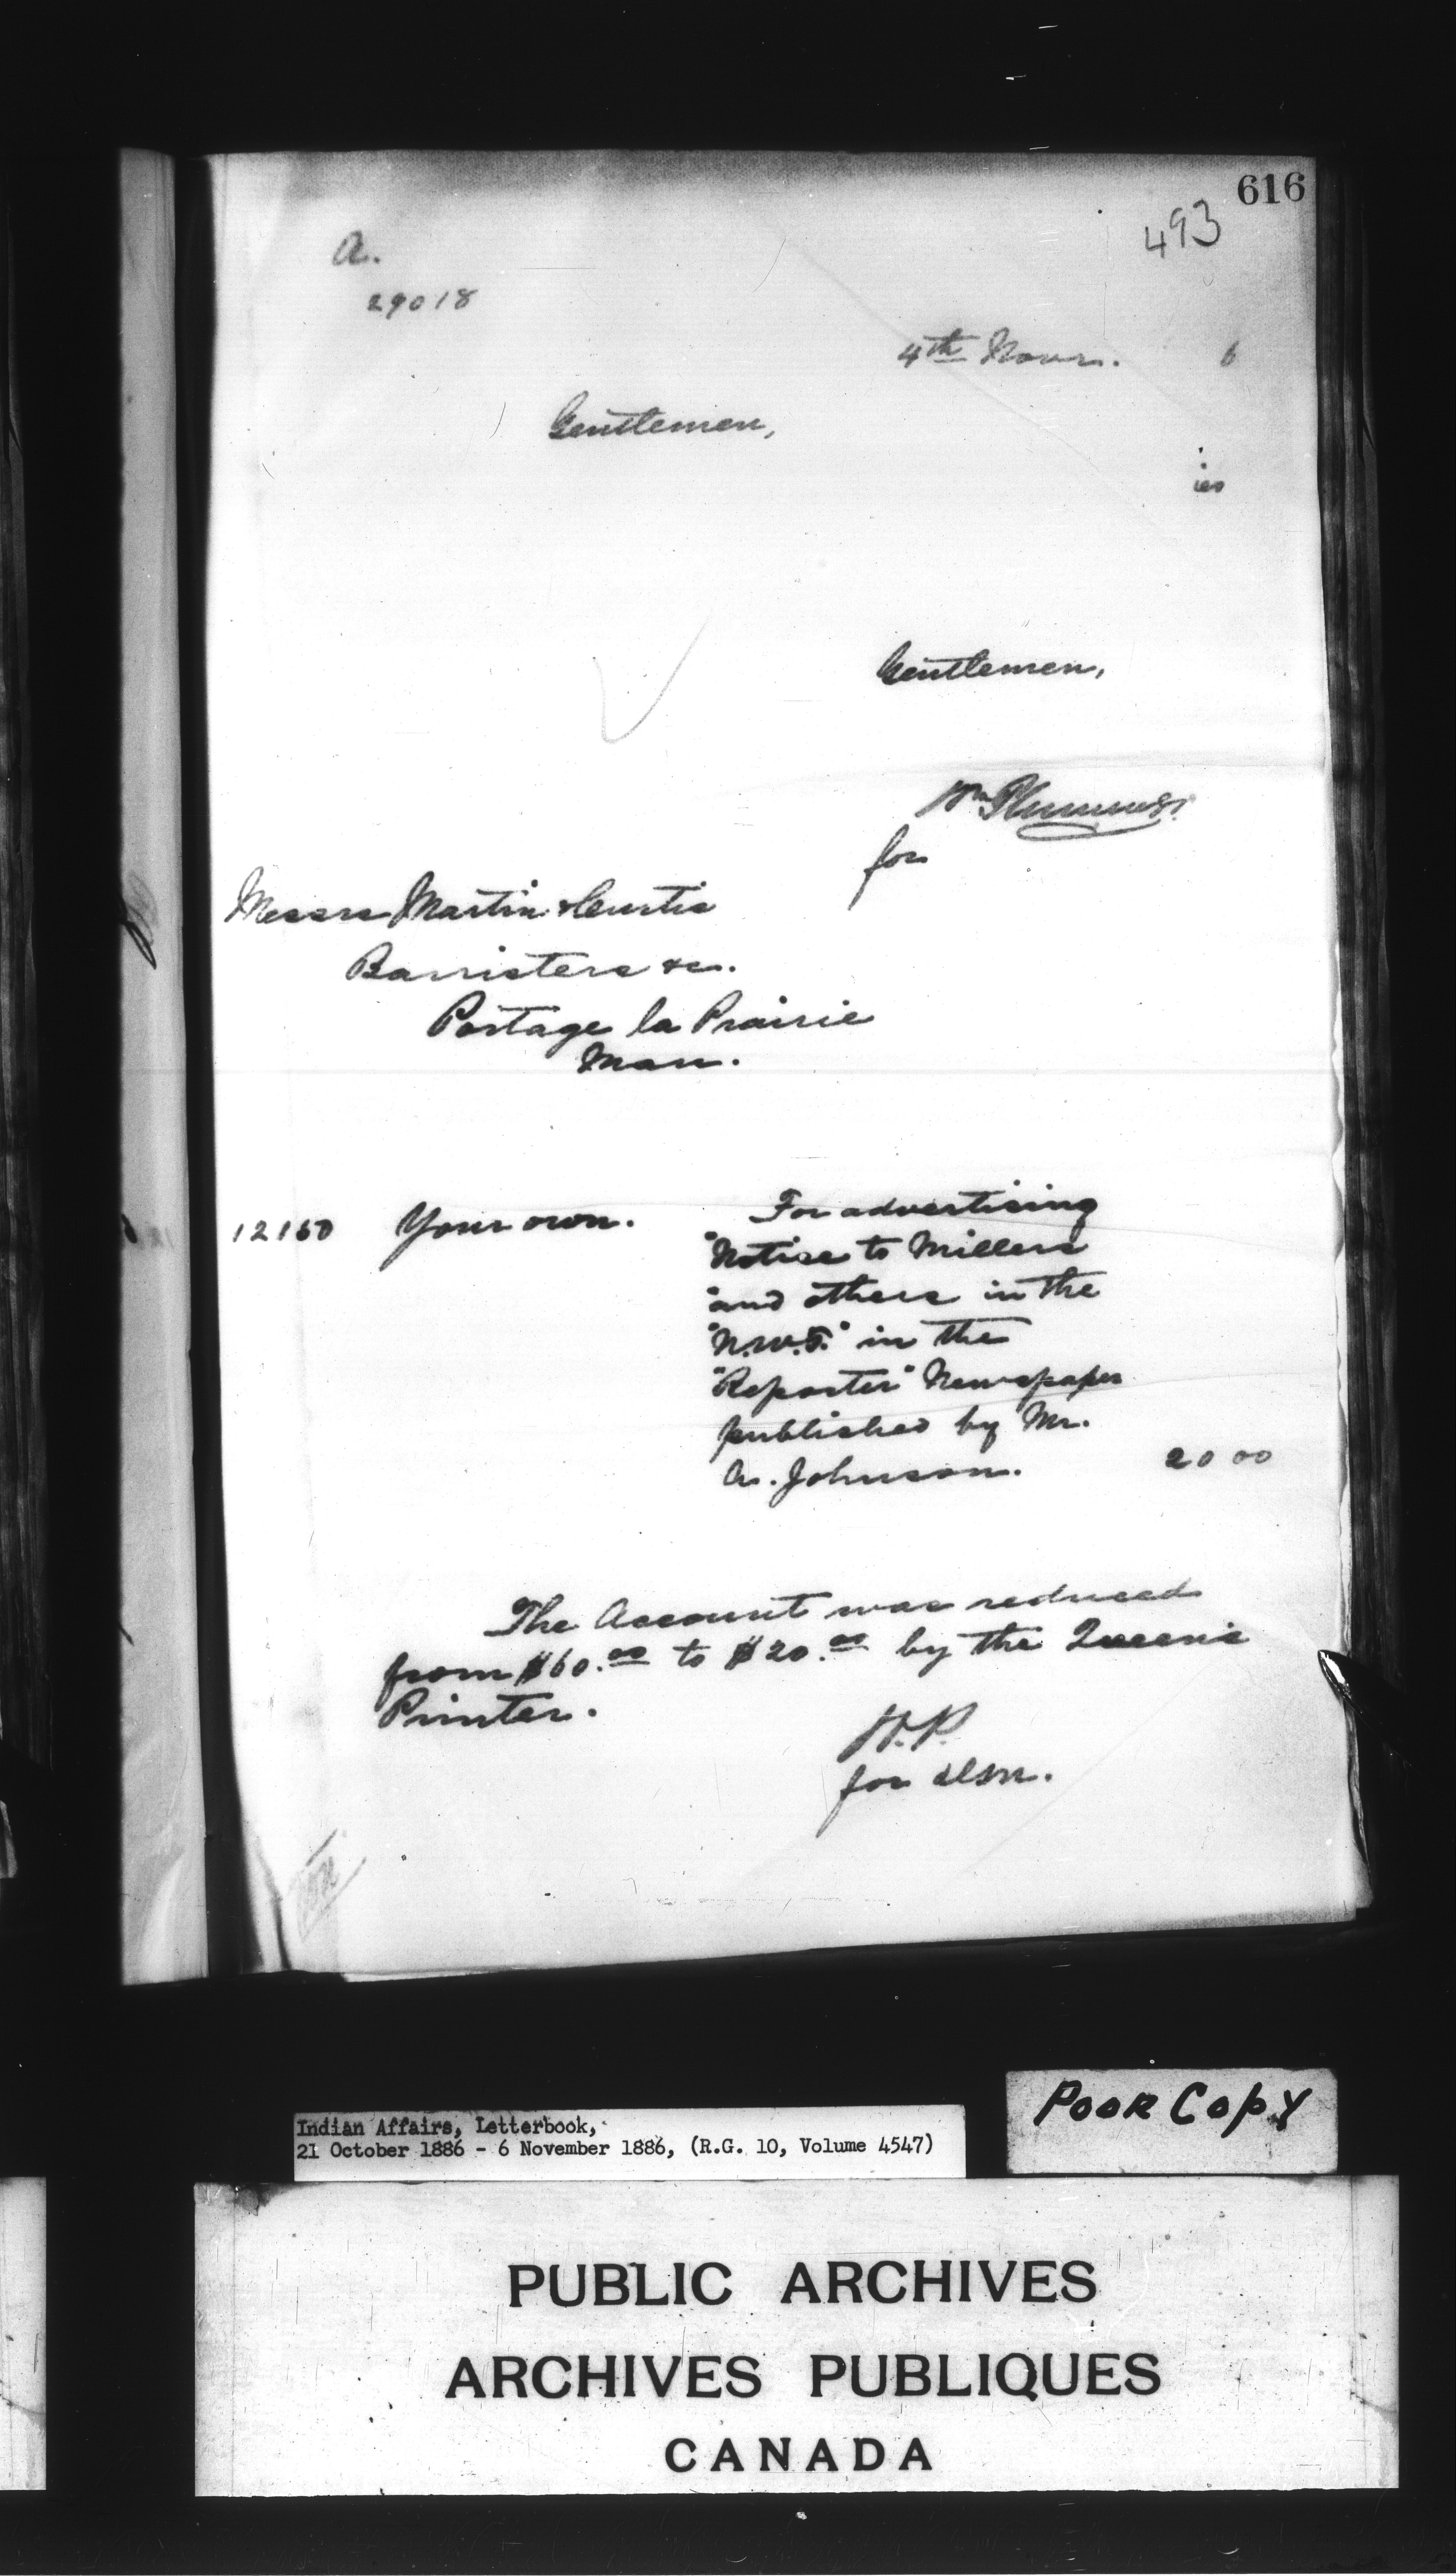 616
493
A.
29018
4th Novr. 6
Gentlemen,
ies
Gentlemen,
Wm Plummer
for
Messrs Martin & Curtis
Barristers &c.
Portage la Prairie
Man.
12160 Your own. For advertising
"Notice to Millers
"and others in the
"N.W.T." in the
"Reporter" Newspaper
published by Mr.
A. Johnson. 20 00
The Account was reduced
from $60.00 to $20.00 by the Queen's
Printer.
W.P.
for DSM.
POOR COPY
Indian Affairs, Letterbook,
21 October 1886 - 6 November 1886, (R.G. 10, Volume 4547)
PUBLIC ARCHIVES
ARCHIVES PUBLIQUES
CANADA